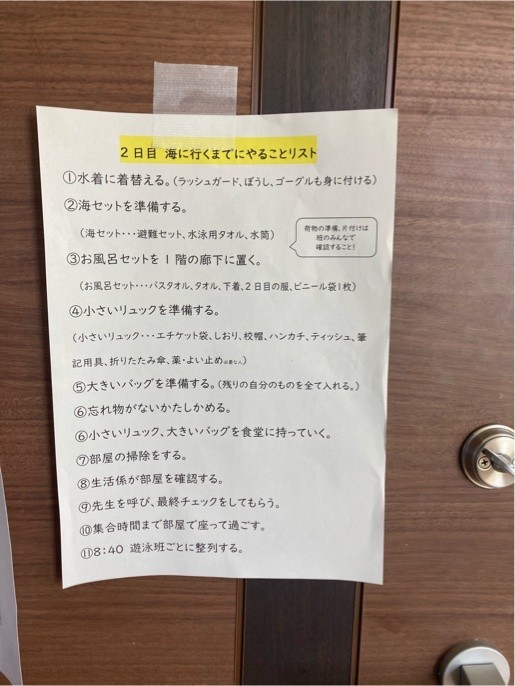 2日目 海に行くまでにやることリスト
①水着に着替える。(ラッシュガード、ぼうし、ゴーグルも身に付ける)
②海セットを準備する。
(海セット・・・避難セット、水泳用タオル、水筒)
荷物の準備、片付けは
班のみんなで
確認すること!
③お風呂セットを1階の廊下に置く。
(お風呂セット・・・バスタオル、タオル、下着、2日目の服、ビニール袋1枚)
④小さいリュックを準備する。
(小さいリュック・・・エチケット袋、しおり、校帽、ハンカチ、ティッシュ、筆
記用具、折りたたみ傘、薬・よい止め必要な人)
⑤大きいバッグを準備する。(残りの自分のものを全て入れる。)
⑥忘れ物がないかたしかめる。
⑥小さいリュック、大きいバッグを食堂に持っていく。
⑦部屋の掃除をする。
⑧生活係が部屋を確認する。
⑨先生を呼び、最終チェックをしてもらう。
⑩集合時間まで部屋で座って過ごす。
⑪8:40 遊泳班ごとに整列する。